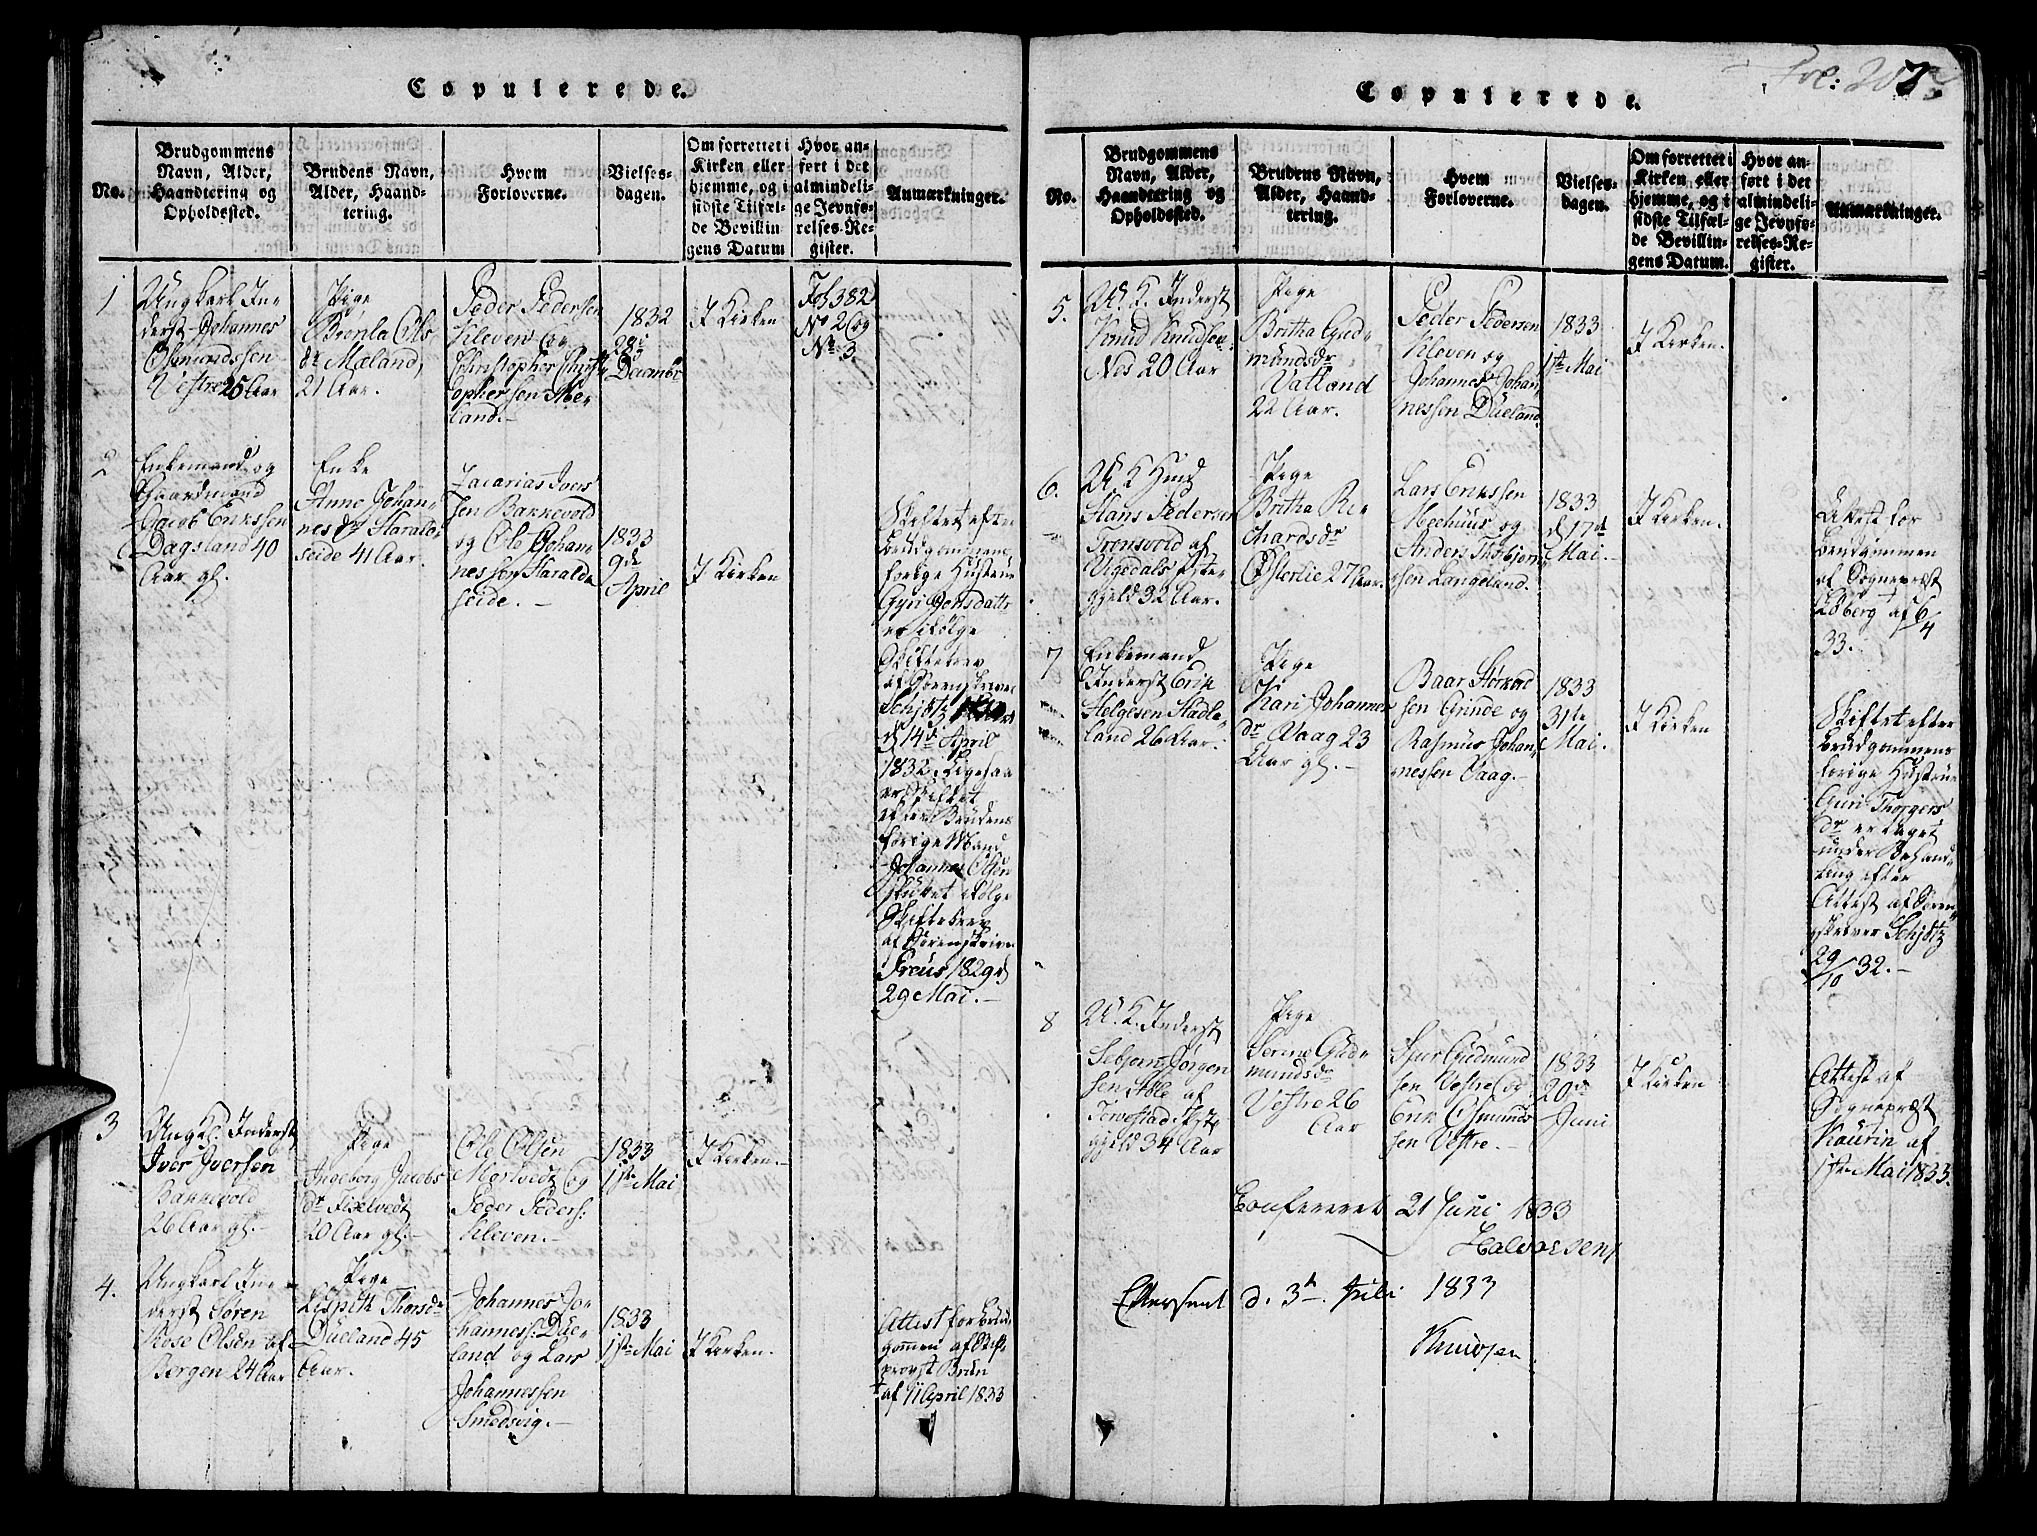 Copulerede.
No.
Brudgommens
Navn, Alder,
Haandtering og
Opholdssted.
Brudens Navn,
Alder, Haand-
tering.
Hvem
Forloverne.
Vielses-
dagen.
Om forrettet i
Kirken eller
hjemme, og i
sidste Tilfæl-
de Bevillin
gens Datum
Hvor an-
ført i det
almindeli-
ge Jevnfø-
relses-Re-
gister.
Anmærkninger.
1
Ungkarl In-
derst Johannes
Osmundssen
Vestre 25 Aar
Pige
Ols-
dr Mæland,
21 Aar.
Peder Pedersen
Kleven og
Christopher Christ-
ophersen Mæ-
land.
1832
28de
December
I Kirken
Fol 382
No 2 og
No 3
2
Enkemand og
Gaardmand
Jacob Erikssen
Dagsland 40
Aar gl.
Enke
Anne Johan-
nesdr Haralds-
eide 41 Aar.
Zacarias Ivers
sen Bakkevold
og Ole Johan-
nessen Haralds-
eide. -
1833
9de
April
I Kirken
Skiftet efter
Brudgommens
forige Hustrue
Gyri Jonsdatter
er ifølge
Skiftebrev
af Sorenskriver
Schjøtz
d 14de April
1832. Ligesaa
er Skiftet
efter Brudens
forige Mand
Johannes Olsen
sluttet ifølge
Skiftebrev
af Sorenskriver
Freus 1829 d
29 Mai. -
3
Ungk. Inderst
Iver Iversen
Bakkevold
26 Aar gl. -
Pige
Ingeborg Jacobs
dr Fiselvedt
20 Aar gl. -
Ole Olsen
Mortvedt og
Peder Peders:
Kleven. -
1833
1ste Mai
I Kirken. -
4.
Ungkarl In-
derst Søren
Rose Olsen af
Bergen 24 Aar
Pige
Lispith Thorsdr
Dueland 45
Aar.
Johannes Jo-
hanness: Due-
land og Lars
Johannessen
Smedsvig. -
1833
1ste Mai
I Kirken.
Attest for Brud-
gommen af
provst Brun
af 11 April 1833
Copulerede.
Fol: 207
No.
Brudgommens
Navn, Alder,
Haandtering og
Opholdssted.
Brudens Navn,
Alder, Haand-
tering.
Hvem
Forloverne.
Vielses-
dagen.
Om forrettet i
Kirken eller
hjemme, og i
sidste Tilfæl-
de Bevillin-
gens Datum.
Hvor an-
ført i det
almindeli-
ge Jevnfø-
relses-Re-
gister.
Anmærkninger.
5.
U. K. Inderst
Knud Knudsen
Nes 20 Aar
Pige
Britha Gud-
mundsdr
Vatland
22 Aar.
Peder Pedersen
Kleven og
Johannes Johan-
nessen Dueland.
1833
1ste Mai
I Kirken.
6.
U. K.
Hans Pedersen
Tronsvold af
Vigedals Præste-
gjeld 32 Aar.
Pige
Britha Ri-
chardsdr
Østerlie 27 Aar.
Lars Erikssen
Meehuus og
Anders Thorbjørn-
sen Langeland.
1833
d 17de
Mai. -
I Kirken.
Attest for
Brudgommen
af Sognepræst
af 6/4
33. -
7
Enkemand
Inderst Erik
Helgesen Hadle-
land 26 Aar. -
Pige
Kari Johannes
dr Vaag 23
Aar gl. -
Baar Størkord
sen Grinde og
Rasmus Johan-
nessen Vaag. -
1833
31te
Mai. -
I Kirken
Skiftet efter
Brudgommens
forige Hustrue
Guri Thorgers
dr er taget
under Behand-
ling efter
Attest af Soren-
skriver Schjøtz
29/10 32. -
8
U. K. Inderst
Sebjørn Jørgen
sen Øle af
Præste
gjeld 34 Aar
Pige
Serine Gud-
mundsdr
Vestre 26
Aar
Gudmund
sen Vestre og
Erik Osmunds-
sen Vestre. -
1833
20de
Juni
I Kirken
Attest af
Sognepræst
Kaurin af
1ste Mai 1833.
Confereret 21 Juni 1833
Halvorsen
Efterseet d. 3de Juli 1833
Knudsen